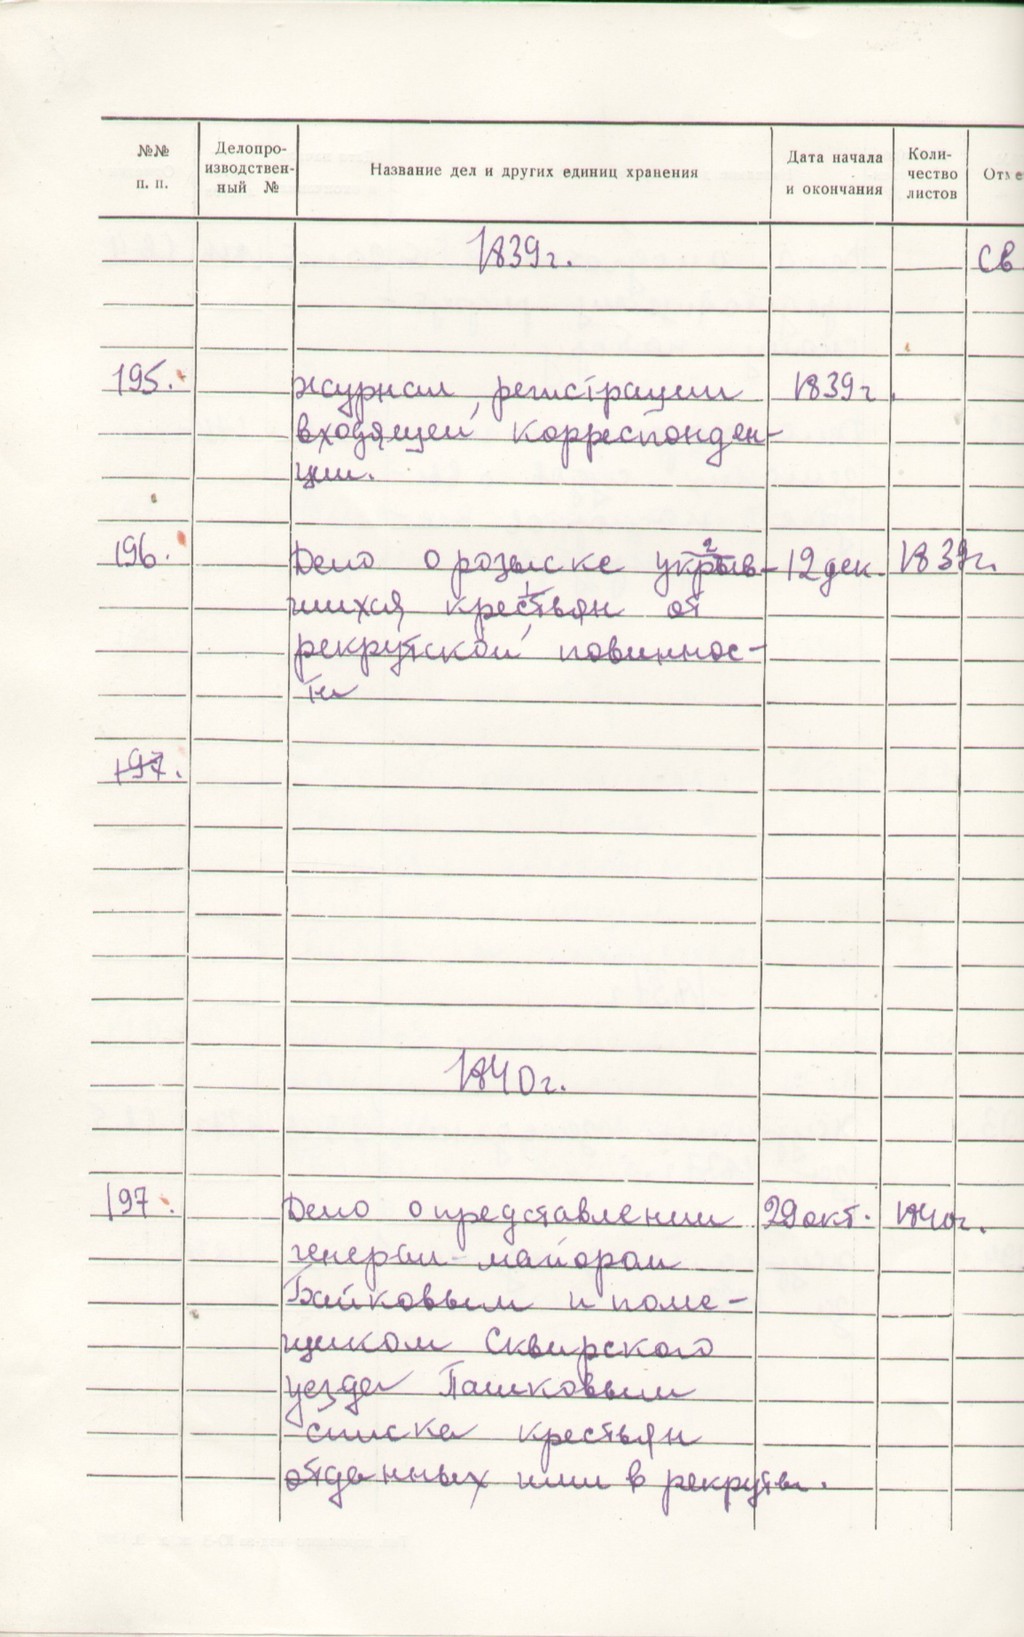 №№ п. п.
Делопро-
изводствен-
ный №
Название дел и других единиц хранения
Дата начала
и окончания
Коли-
чество
листов
1839г.
св
195.
журнал регистрации
1839г.
входящей корреспонден-
ции.
196.
Дело о розыске укрыв-
12 дек.
1839г.
шихся крестьян от
рекрутской повиннос-
ти
197.
1840г.
197.
Дело о представлении
29 окт.
1840г.
генерал-майором
Байковым и поме-
щиком Сквирского
уезда Пашковым
списка крестьян
отданных ими в рекруты.